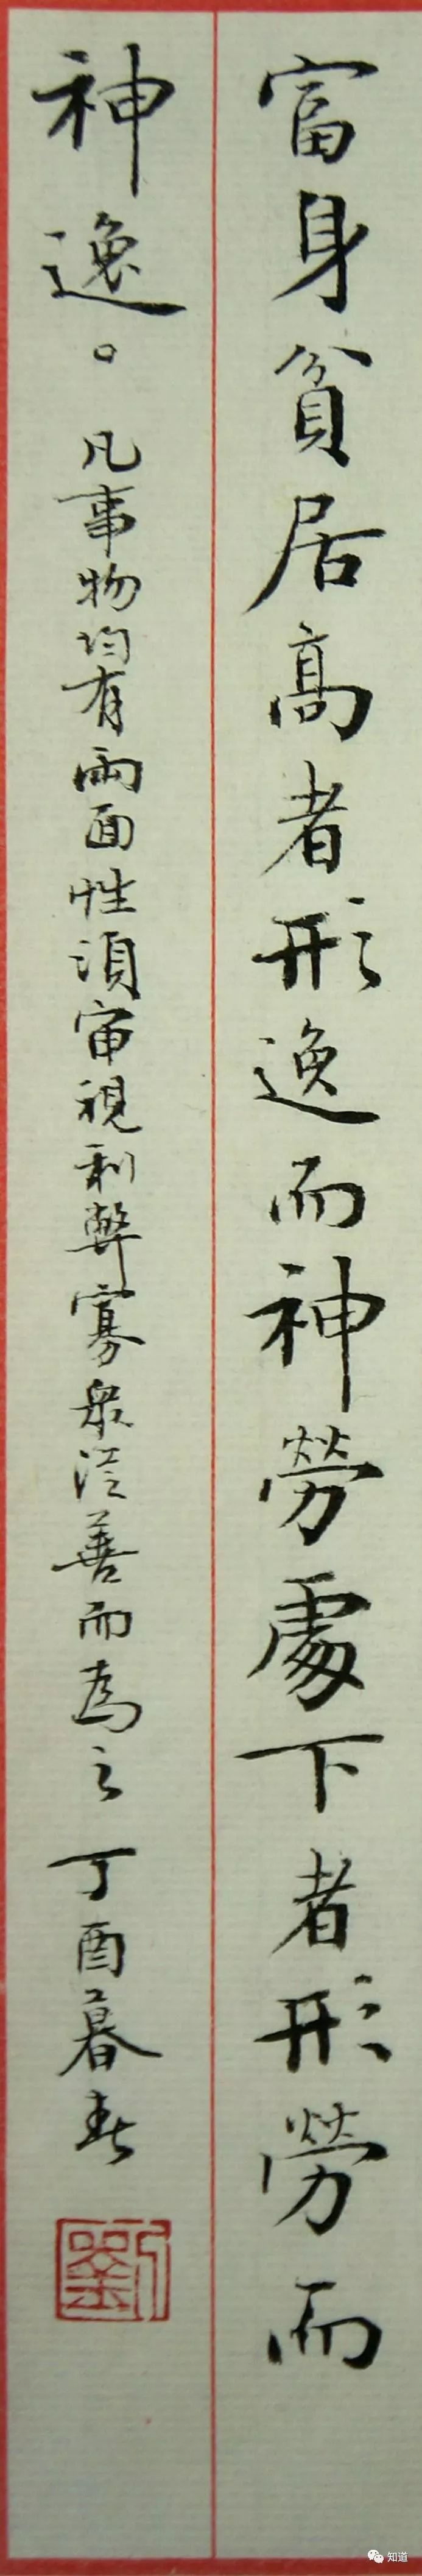 富身貧居高者形逸而神勞處下者形勞而
神逸。凡事物均有兩面性須審視利弊寡衆從善而為之 丁酉暮春
劉
知道